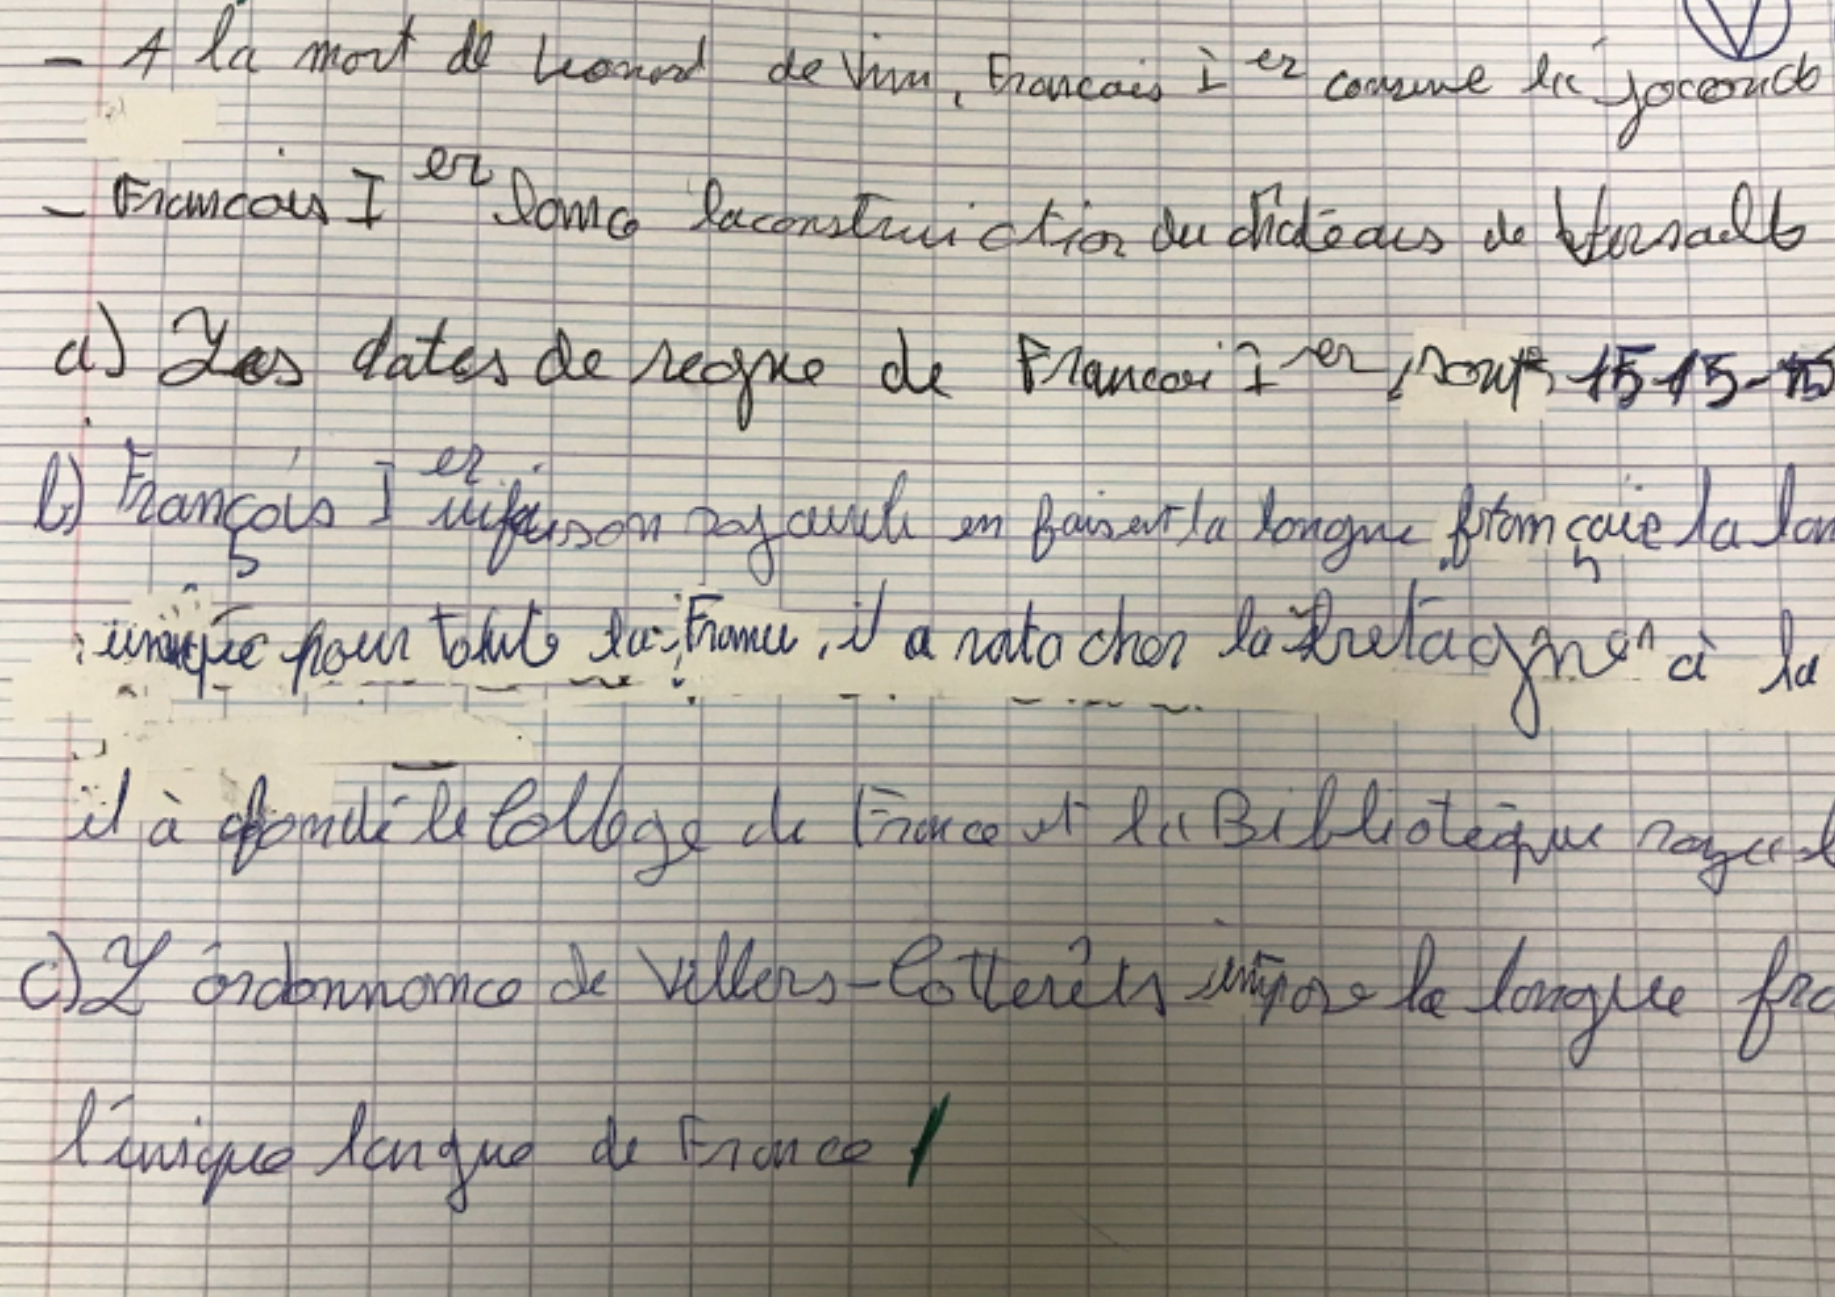 - A la mort de Leonard de Vinci, Francais Ier conserve la joconde
- Francois Ier lance la construction du châteaus de Versaille
a) Les dates de regne de Francois Ier, sont 1515-15
b) François Ier en faisent la langue française la lan
unique pour toute la France, il a ratacher la Bretagne à la
il à fondé le College de France et la Bibliotèque royal
c) L'ordonnance de Villers-Cotterêts impose la langue fra
l'unique langue de France